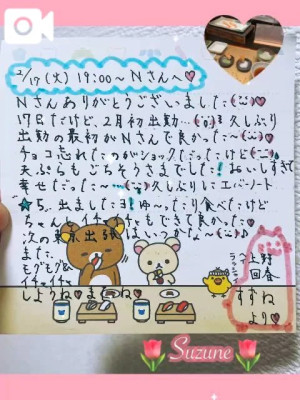 2/17(火) 19:00～ Nさんへ♡
Nさんありがとうございました(¨̮)♥
17日だけど、2月初出勤…(°o°)!! 久しぶり
出勤の最初がNさんで良かった～(¨̮)
チョコ忘れたのがショックだったけど(¨̮)
天ぷらもごちそうさまでした!おいしすぎて
幸せだった～…(¨̮)久しぶりにエバーノート
★5、出ました ヨ!ゆったり食べたけど
ちゃんとイチャイチャもできて良かった♡
次の東京出張はいつかな～(¨̮)♪
また、
モグモグ&
イチャイチャ
しようね♥またね♥
上野
回春
すずね
より♥
Suzune